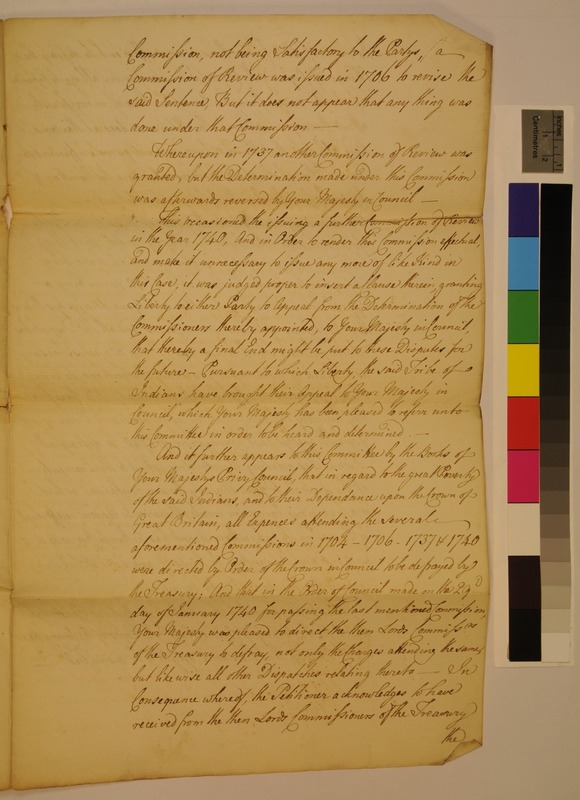 Commission, not being Satisfactory to the Partys, (a
Commission of Review was issued in 1706 to revise the
said Sentence, But it does not appear that any thing was
done under that Commission —
Whereupon in 1737 another Commission of Review was
granted, but the Determination made under this Commission
was afterwards reversed by Your Majesty in Council —
This occasioned the issuing a further Commission of Review
in the Year 1740, And in Order to render this Commission effectual,
and make it unnecessary to issue any more of like Kind in
this Case, it was judged proper to insert a Clause therein, granting
Liberty to either Party to Appeal from the Determination of the
Commissioners thereby appointed, to Your Majesty in Council,
that thereby a final End might be put to these Disputes for
the future — Pursuant to which Liberty, the said Tribe of
Indians have brought their Appeal to Your Majesty in
Council, which Your Majesty has been pleased to referr unto
this Committee in order to be heard and determined —
And it further appears to this Committee by the Books of
Your Majestys Privy Council, that in regard to the great Poverty
of the said Indians, and to their Dependance upon the Crown of
Great Britain, all Expences attending the several
aforementioned Commissions in 1704 - 1706 - 1737 & 1740
were directed by Order of the Crown in Council to be defrayed by
the Treasury; And that in the Order of Council made on the 29.d
day of January 1740 for passing the last mentioned Commission,
Your Majesty was pleased to direct the then Lords Commiss.rs
of the Treasury to defray, not only the Charges attending the same,
but likewise all other Dispatches relating thereto — In
Consequence whereof, the Petitioner acknowledges to have
received from the then Lords Commissioners of the Treasury
the
inches
1
1
2
Centimetres